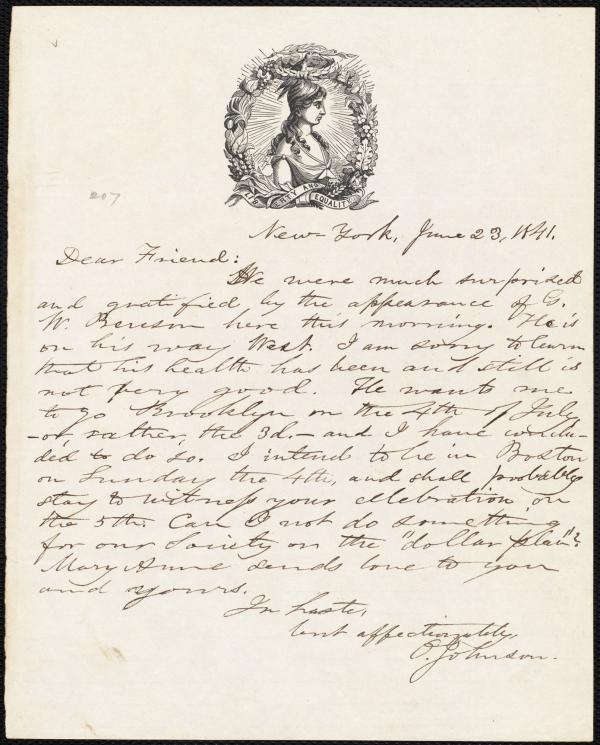 207
LIBERTY AND EQUALITY
New-York, June 23, 1841.
Dear Friend:
We were much surprised
and gratified by the appearance of G.
W. Benson here this morning. He is
on his way West. I am sorry to learn
that his health has been and still is
not very good. He wants me
to go Brooklyn on the 4th of July
– or, rather, the 3d. – and I have conclu-
ded to do so. I intend to be in Boston
on Sunday the 4th, and shall probably
stay to witness your celebration on
the 5th. Can I not do something
for our Society on the "dollar plan"?
Mary Anne sends love to you
and yours.
In haste,
but affectionately,
O. Johnson.